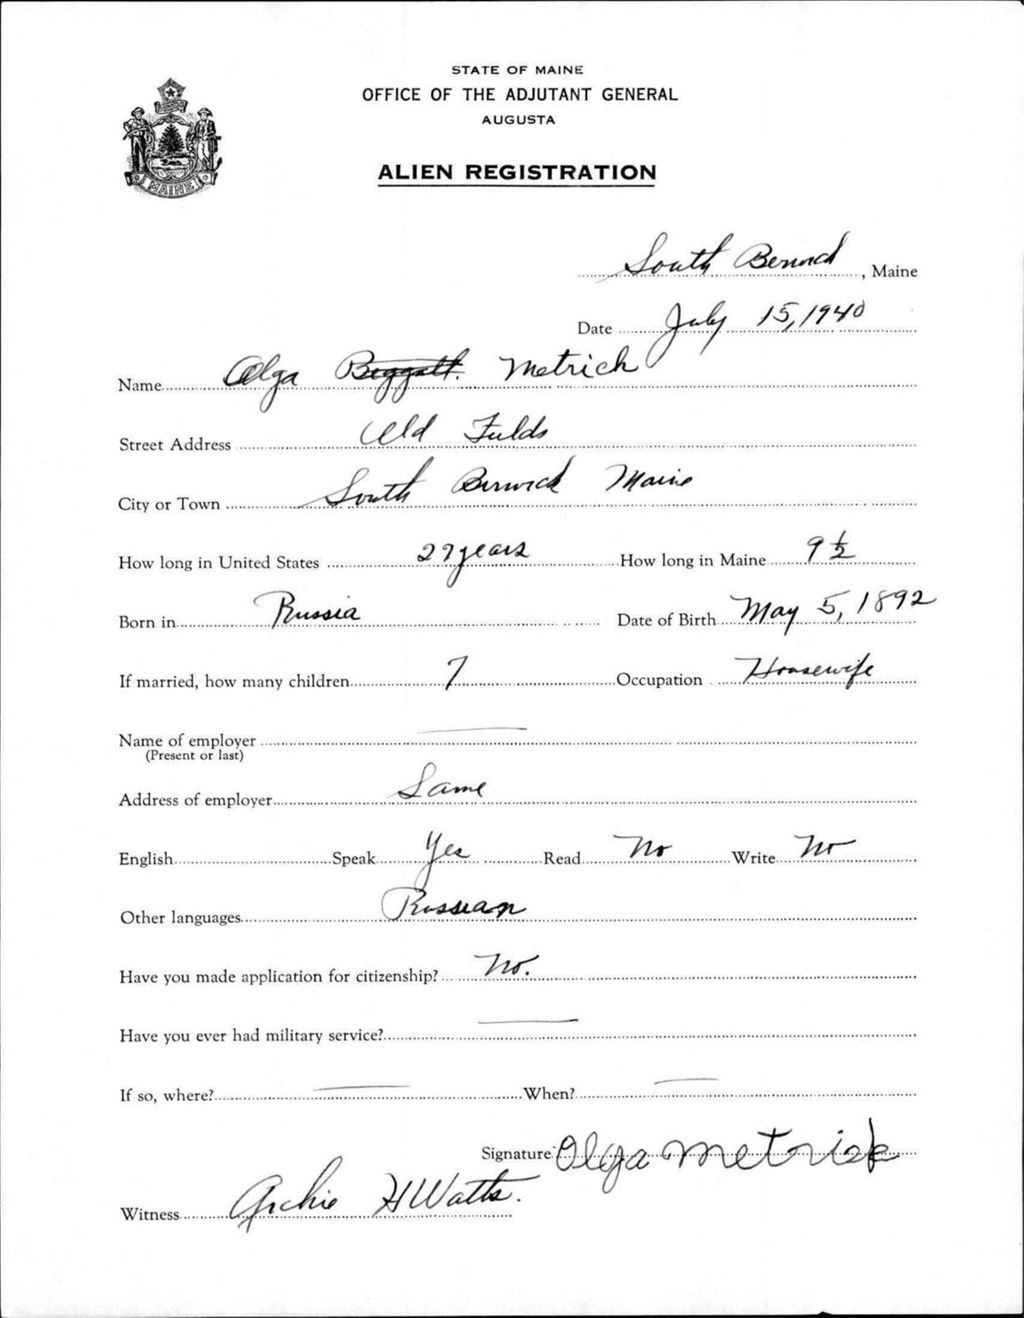 STATE OF MAINE
OFFICE OF THE ADJUTANT GENERAL
AUGUSTA
ALIEN REGISTRATION
MAINE
South Berwick, Maine
Date July 15, 1940
Name Olga Metrich
Street Address Old Fields
City or Town South Berwick Maine
How long in United States 27 years How long in Maine 9 ½
Born in Russia Date of Birth May 5, 1892
If married, how many children 7 Occupation Housewife
Name of employer
(Present or last)
Address of employer Same
English Speak Yes Read No Write No
Other languages Russian
Have you made application for citizenship? No.
Have you ever had military service?
If so, where? When?
Signature Olga Metrick
Witness Archie H Watts.